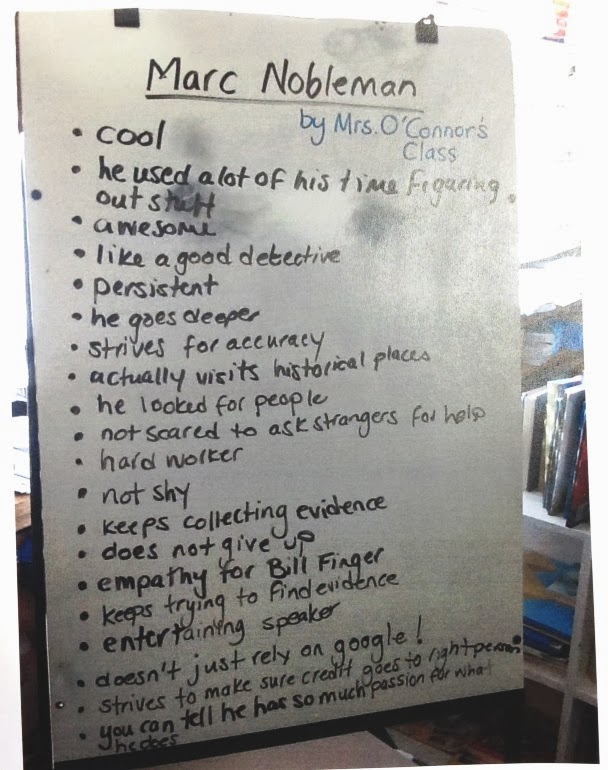 Marc Nobleman
by Mrs. O'Connor's
Class
• cool
• he used a lot of his time figuring
out stuff
• awesome
• like a good detective
• persistent
• he goes deeper
• strives for accuracy
• actually visits historical places
• he looked for people
• not scared to ask strangers for help
• hard worker
• not shy
• keeps collecting evidence
• does not give up
• empathy for Bill Finger
• keeps trying to find evidence
• entertaining speaker
• doesn't just rely on google!
• strives to make sure credit goes to right person
• you can tell he has so much passion for what
he does